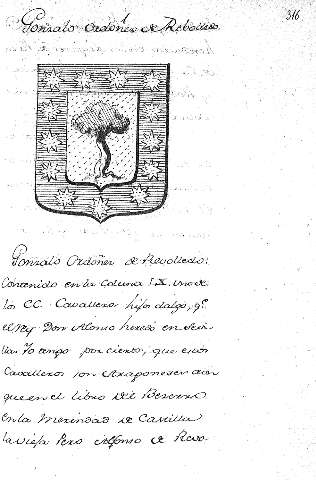 316
Gonzalo Ordoñez de Rebolledo
Gonzalo Ordoñez de Revolledo:
Contenido en la Coluna IX. uno de
los CC. Cavalleros hijos dalgo, qe.
el Rey Don Alonso heredó en Sevi-
lla: Yo tengo por cierto, que estos
Cavalleros son Aragoneses aun
que en el libro del Becerro
en la Merindad de Castilla
la vieja Pero Alfonso de Revo-